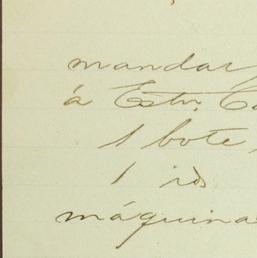 mandar
á Estn. Ca
1 bote,
1 
máquina